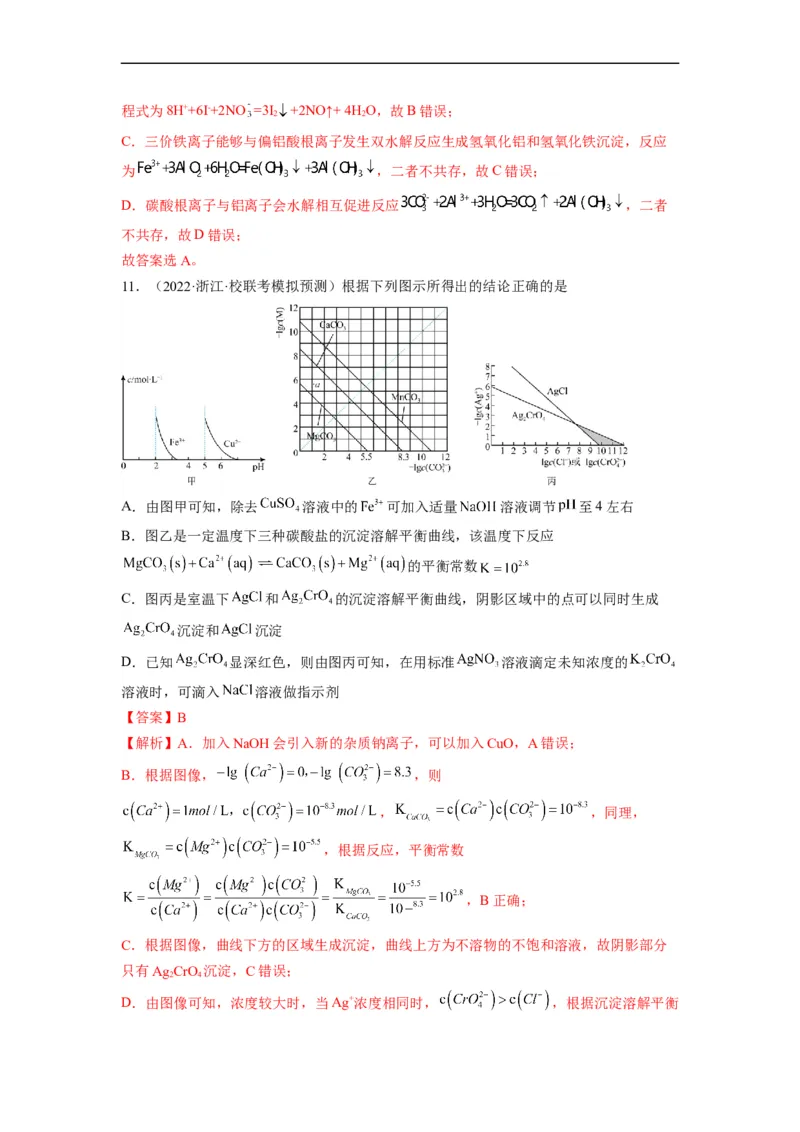 程式为 8H⁺+6I⁻+2NO₃⁻=3I₂↓+2NO↑+ 4H₂O，故 B 错误；
C．三价铁离子能够与偏铝酸根离子发生双水解反应生成氢氧化铝和氢氧化铁沉淀，反应
为 Fe³⁺+3AlO₂⁻+6H₂O=Fe(OH)₃↓+3Al(OH)₃↓，二者不共存，故 C 错误；
D．碳酸根离子与铝离子会水解相互促进反应 3CO₃²⁻+2Al³⁺+3H₂O=3CO₂↑+2Al(OH)₃↓，二者
不共存，故 D 错误；
故答案选 A。
11．（2022·浙江·校联考模拟预测）根据下列图示所得出的结论正确的是
c/mol·L⁻¹
Fe³⁺
Cu²⁺
0 2 4 5 6 pH
甲
-lgc(M)
12
10
8
6
4
2
0
CaCO₃
a
MnCO₃
MgCO₃
2 4 5.5 8.3 10 12
-lgc(CO₃²⁻)
乙
-lgc(Ag⁺)
8
7
6
5
4
3
2
1
0
AgCl
Ag₂CrO₄
1 2 3 4 5 6 7 8 9 10 11 12
-lgc(Cl⁻)或-lgc(CrO₄²⁻)
丙
A．由图甲可知，除去 CuSO₄ 溶液中的 Fe³⁺ 可加入适量 NaOH 溶液调节 pH 至 4 左右
B．图乙是一定温度下三种碳酸盐的沉淀溶解平衡曲线，该温度下反应
MgCO₃(s)+Ca²⁺(aq)⇌CaCO₃(s)+Mg²⁺(aq) 的平衡常数 K=10²·⁸
C．图丙是室温下 AgCl 和 Ag₂CrO₄ 的沉淀溶解平衡曲线，阴影区域中的点可以同时生成
Ag₂CrO₄ 沉淀和 AgCl 沉淀
D．已知 Ag₂CrO₄ 显深红色，则由图丙可知，在用标准 AgNO₃ 溶液滴定未知浓度的 K₂CrO₄
溶液时，可滴入 NaCl 溶液做指示剂
【答案】B
【解析】A．加入 NaOH 会引入新的杂质钠离子，可以加入 CuO，A 错误；
B．根据图像，-lg(Ca²⁻)=0,-lg(CO₃²⁻)=8.3，则
c(Ca²⁺)=1mol/L，c(CO₃²⁻)=10⁻⁸·³mol/L，K_CaCO₃=c(Ca²⁻)c(CO₃²⁻)=10⁻⁸·³，同理，
K_MgCO₃=c(Mg²⁺)c(CO₃²⁻)=10⁻⁵·⁵，根据反应，平衡常数
K=c(Mg²⁺)/c(Ca²⁺)=c(Mg²)c(CO₃²)/c(Ca²⁺)c(CO₃²⁻)=K_MgCO₃/K_CaCO₃=10⁻⁵·⁵/10−⁸·³=10²·⁸，B 正确；
C．根据图像，曲线下方的区域生成沉淀，曲线上方为不溶物的不饱和溶液，故阴影部分
只有 Ag₂CrO₄ 沉淀，C 错误；
D．由图像可知，浓度较大时，当 Ag⁺浓度相同时，c(CrO₄²⁻)>c(Cl⁻)，根据沉淀溶解平衡